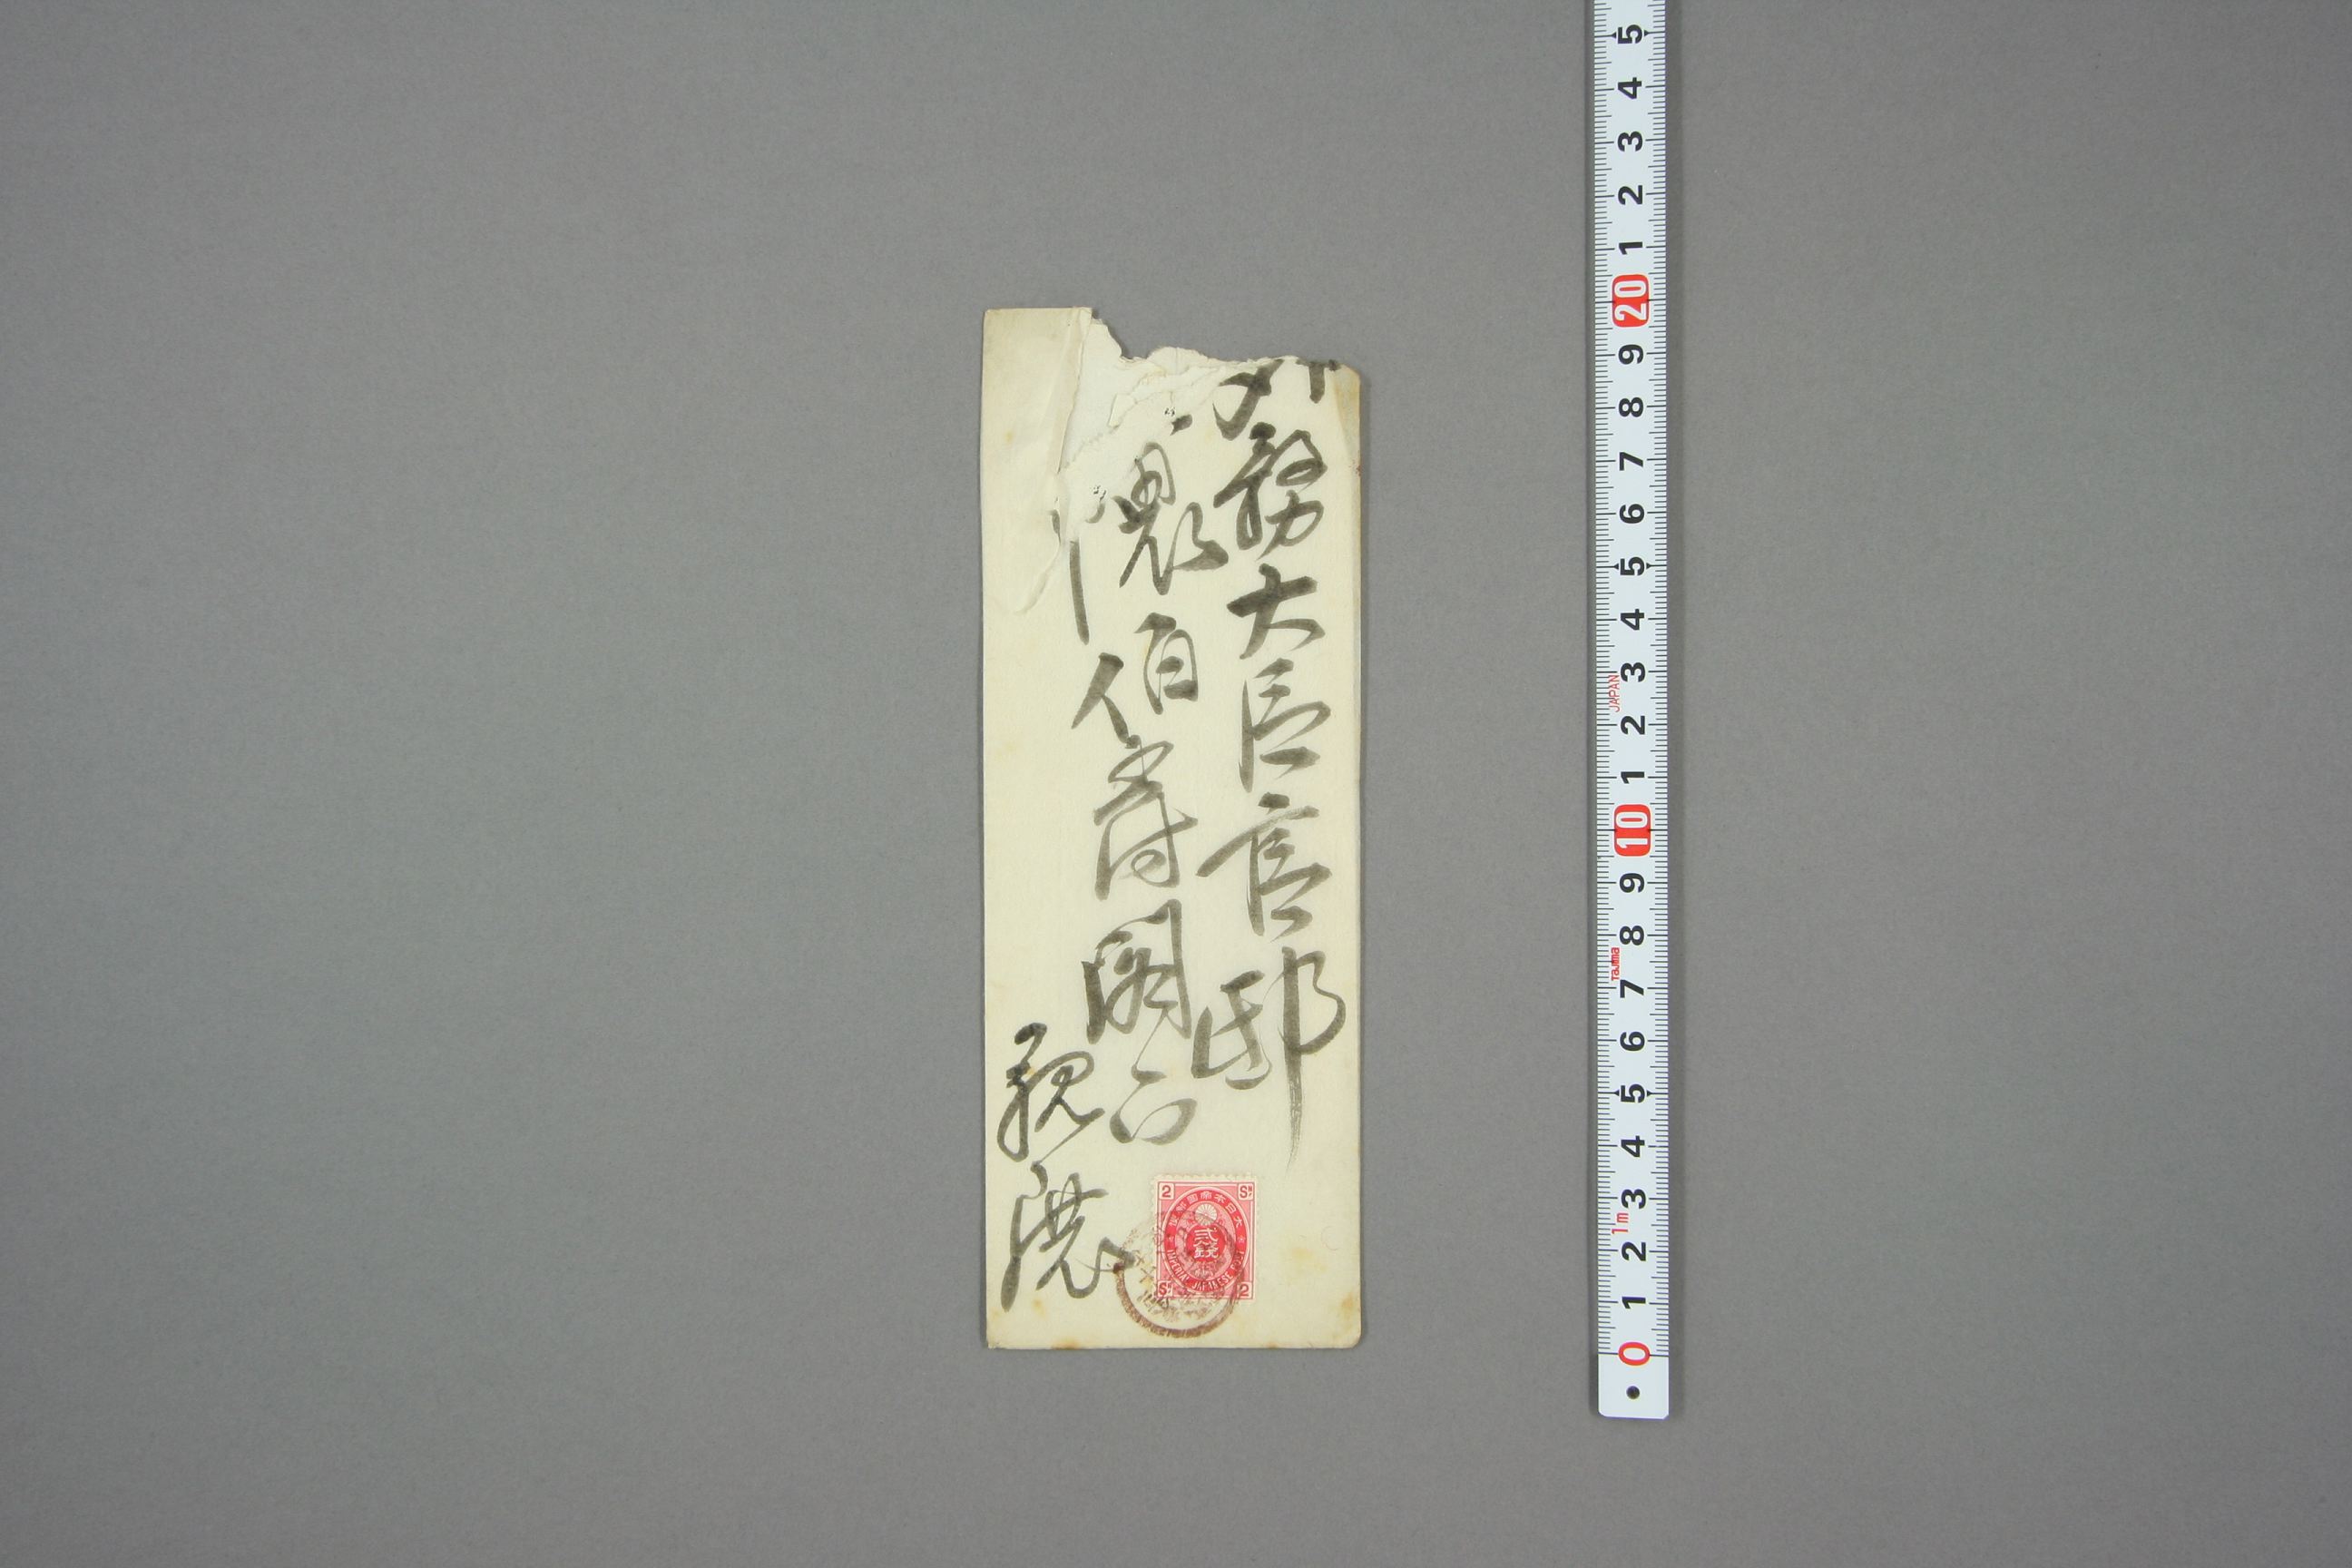 外務大臣官邸
隈伯爵閣下
親展
2 SN
大日本帝國郵便
貳銭
IMPERIAL JAPANESE POST
SN 2
5 4 3 2 1 20 9 8 7 6 5 4 3 2 1 10 9 8 7 6 5 4 3 2 1 0
JAPAN
Tajima
1m